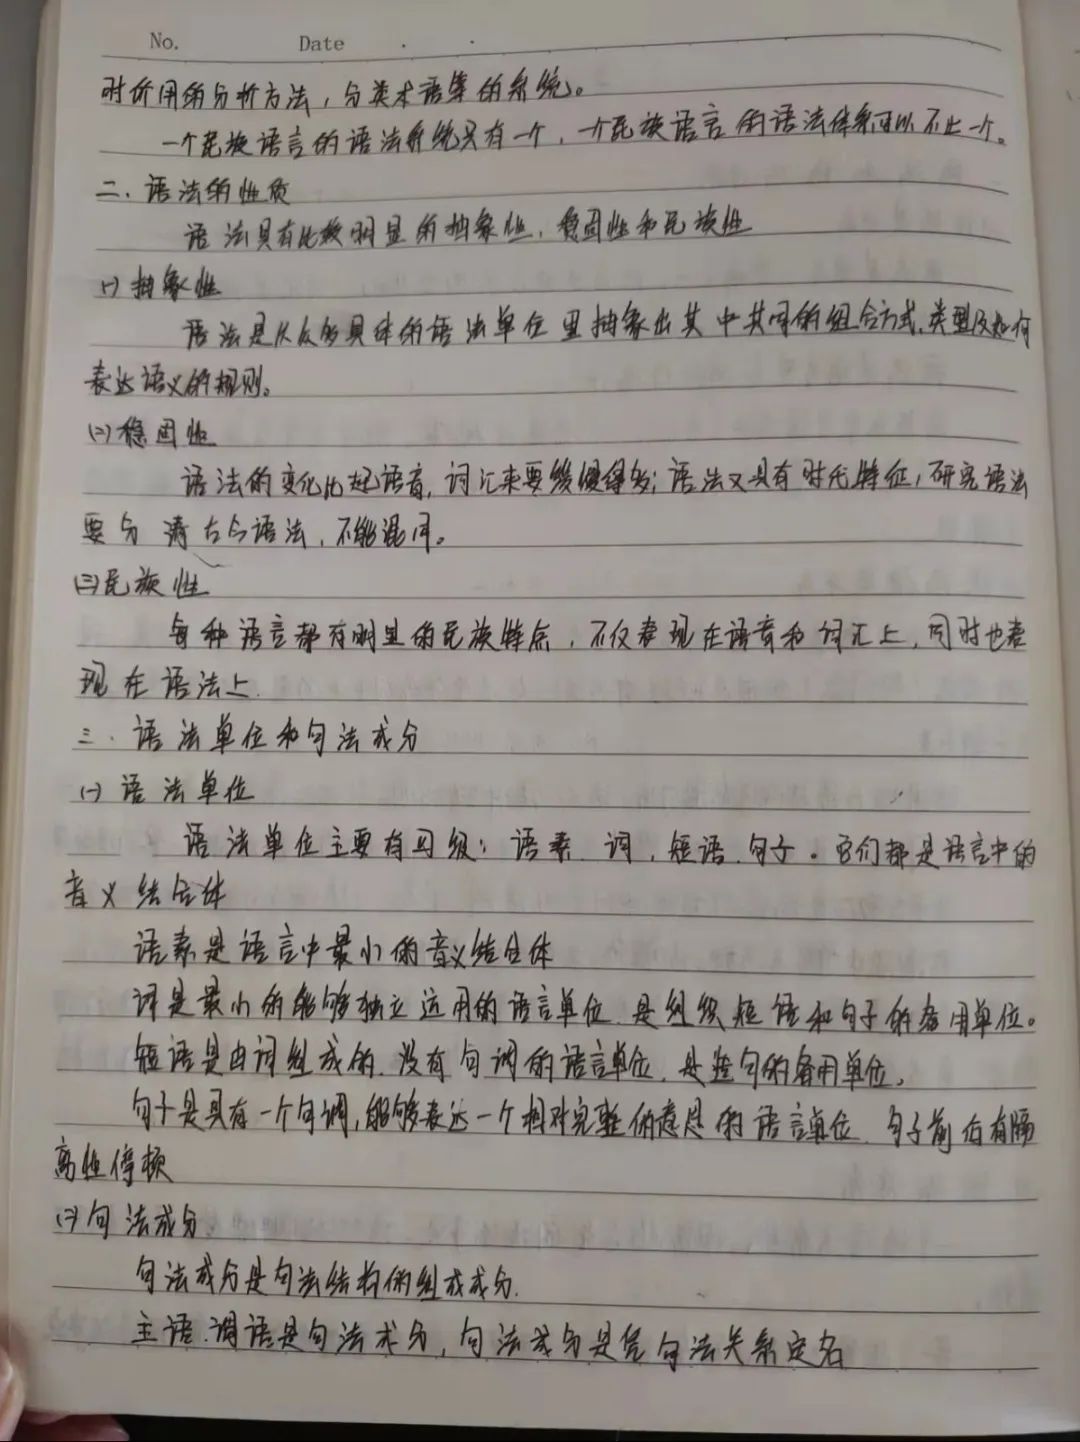 No. Date
时所用的分析方法，分类术语等的系统。
一个民族语言的语法系统只有一个，一个民族语言的语法体系可以不止一个。
二、语法的性质
语法具有比较明显的抽象性、稳固性和民族性
(一)抽象性
语法是从众多具体的语法单位里抽象出其中共同的组合方式、类型及如何
表达语义的规则。
(二)稳固性
语法的变化比起语音，词汇来要缓慢得多；语法又具有时代特征，研究语法
要分清古今语法，不能混同。
(三)民族性
每种语言都有明显的民族特点，不仅表现在语音和词汇上，同时也表
现在语法上.
三、语法单位和句法成分
(一)语法单位
语法单位主要有四级：语素、词、短语、句子。它们都是语言中的
音义结合体
语素是语言中最小的音义结合体
词是最小的能够独立运用的语言单位，是组织短语和句子的备用单位。
短语是由词组成的、没有句调的语言单位，是造句的备用单位。
句子是具有一个句调，能够表达一个相对完整的意思的语言单位，句子前后有隔
离性停顿
(二)句法成分
句法成分是句法结构的组成成分.
主语、谓语是句法成分，句法成分是凭句法关系定名